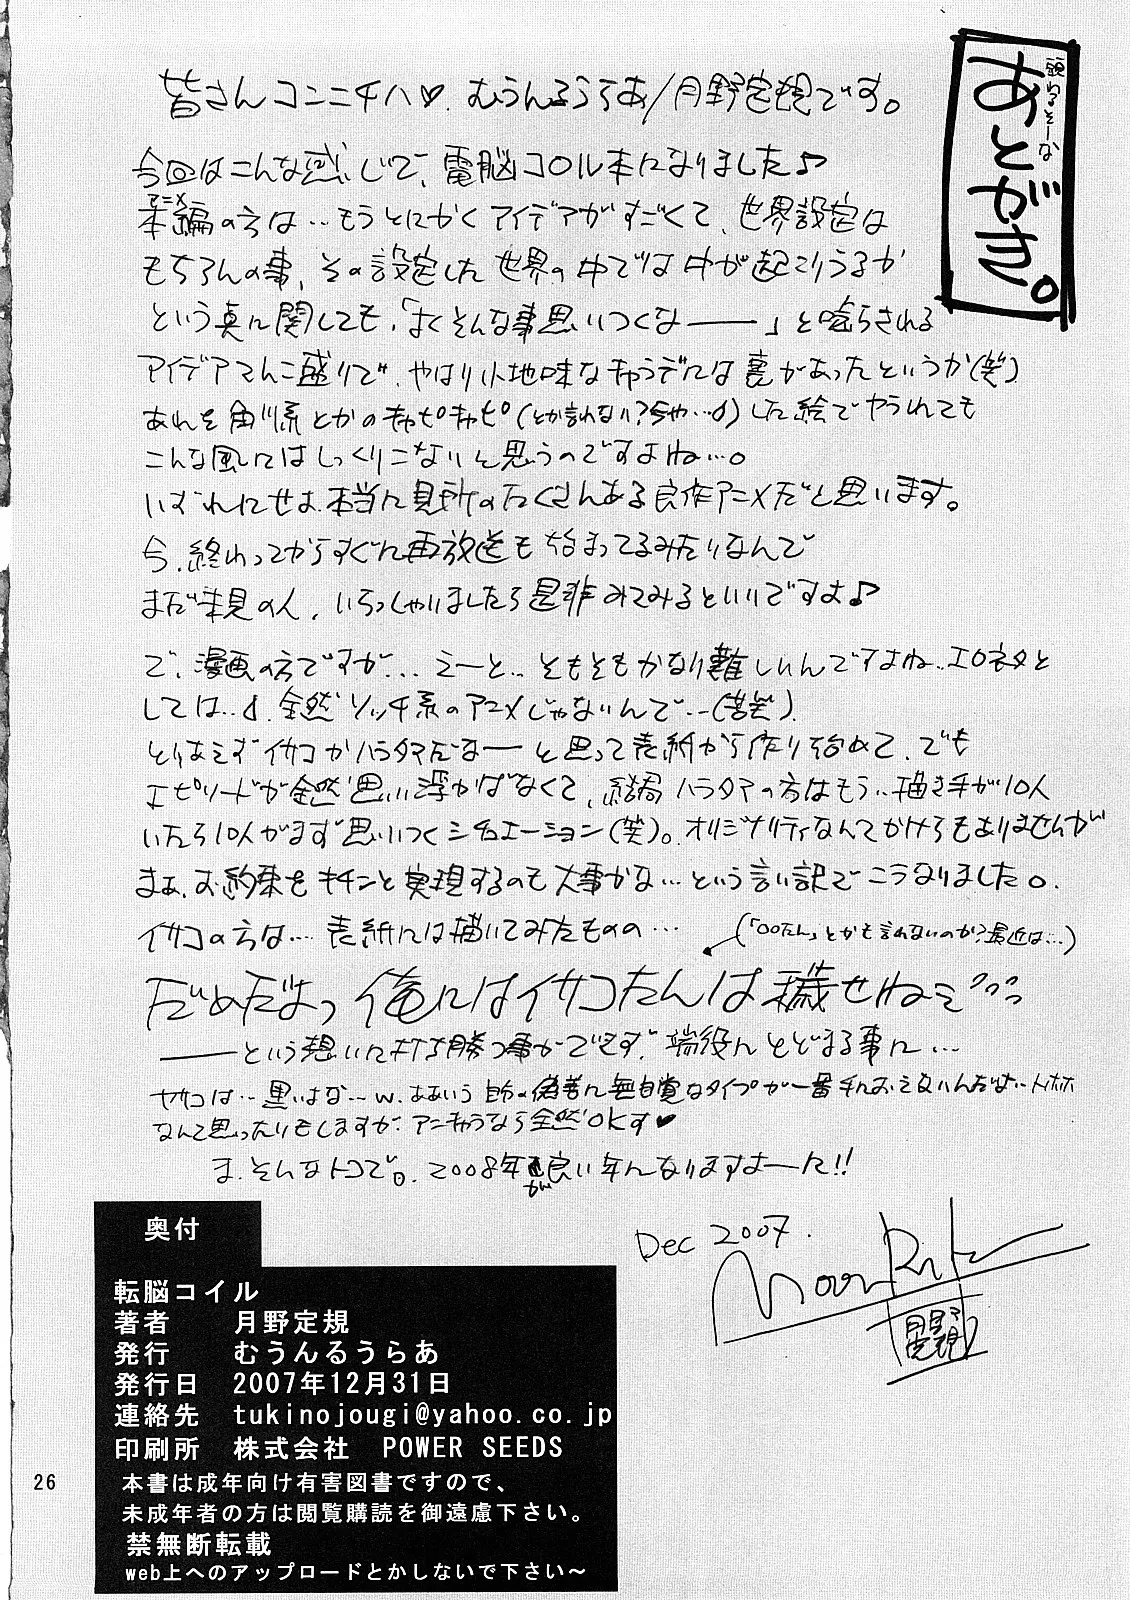 頭わるそーな
あとがき。
皆さんコンニチハ♡. むうんるうらあ/月野定規です。
今回はこんな感じで、電脳コイル本になりました♪
アニメ
本編の方は…もうとにかくアイデアがすごくて、世界設定は
もちろんの事、その設定した世界の中では 中が起こりうるか
という真に関しても、「よくそんな事思いつくなー」と唸らされる
アイデアてんこ盛りで、やはり小地味なキャラデには裏があったというか(笑)
あれを角川系とかのキャピキャピ(とか言わない?ちゃ…♪)した絵でやられても
こんな風にはしっくりこないと思うのですよね…。
いずれにせよ、本当に見所のたくさんある良作アニメだと思います。
今、終わってからすぐに再放送も始まってるみたいなんで
まだ未見の人、いらっしゃいましたら是非みてみるといいですよ♪
で、漫画の方ですが… えーと… そもそもかなり難しいんですよね…エロネタと
しては…♪. 全然ソッチ系のアニメじゃないんで…(苦笑).
とりあえずイサコかハラタマだなー と思って表紙から作り始めて、でも
エピソードが全然思い浮かばなくて、結局ハラタマの方はもう…描き手が10人
いたら10人がまず思いつくシチュエーション(笑)。オリジナリティなんてかけらもありませんが
まぁ、お約束をキチンと実現するのも大事かな…という言い訳でこうなりました。
イサコの方は… 表紙には描いてみたものの…
(「○○たん」とかも言わないのか?最近は…)
だめだよっ 俺にはイサコたんは穢せねぇ
ーという想いに打ち勝つ事ができず、端役にとどまる事に…
ヤサコは… 黒いよな…w. ああいう自分の偽善に無自覚なタイプが一番手におえないんだよ…トホホ
なんて思ったりもしますが、アニキャラなら全然OKす♥
ま、そんなトコで。2008年が良い年になりますよーに!!
Dec 2007.
奥付
転脳コイル
著者 月野定規
発行 むうんるうらあ
発行日 2007年12月31日
連絡先 tukinojougi@yahoo.co.jp
印刷所 株式会社 POWER SEEDS
本書は成年向け有害図書ですので、
未成年者の方は閲覧購読を御遠慮下さい。
禁無断転載
web上へのアップロードとかしないで下さい～
26